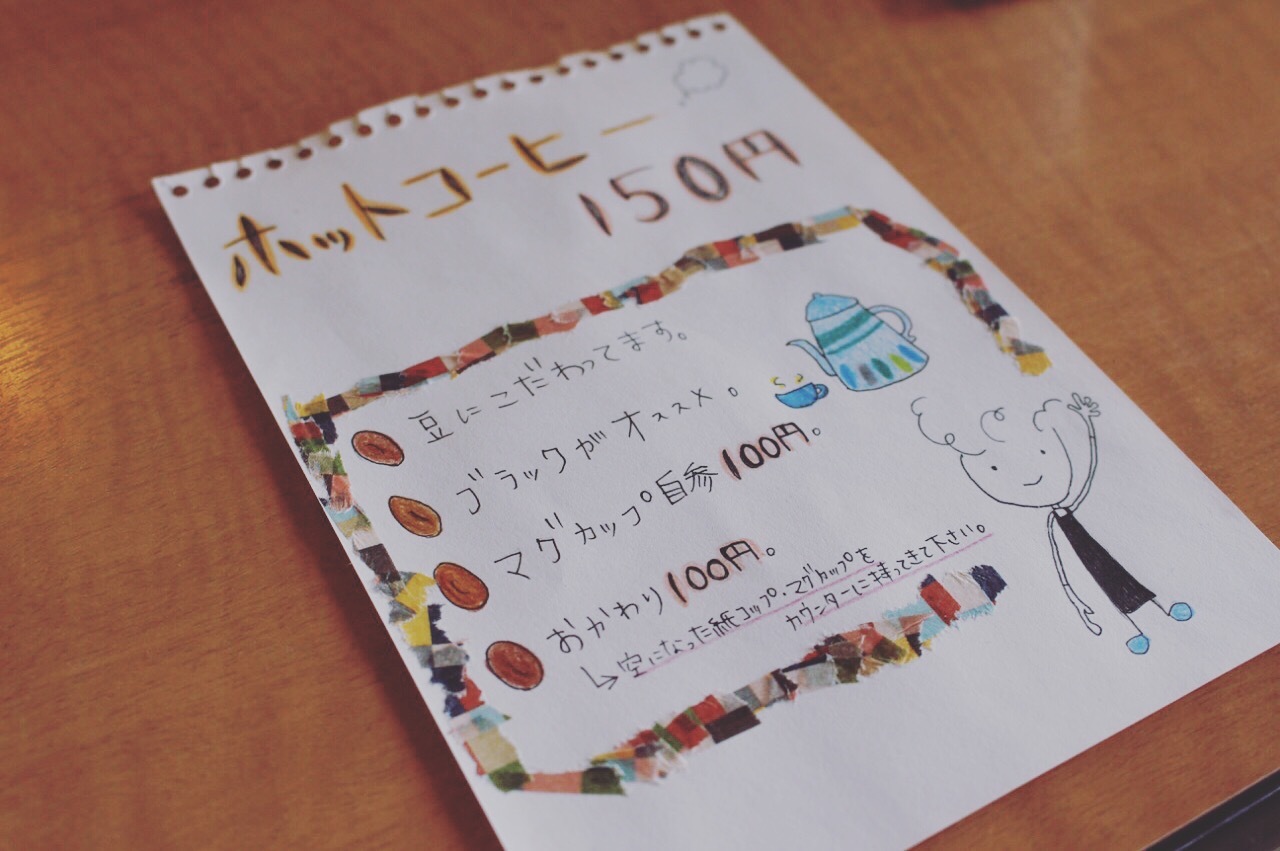 ホットコーヒー
150円
豆にこだわってます。
ブラックがオススメ。
マグカップ自参100円。
おかわり100円。
↳空になった紙コップ・マグカップを
カウンターに持ってきて下さい。